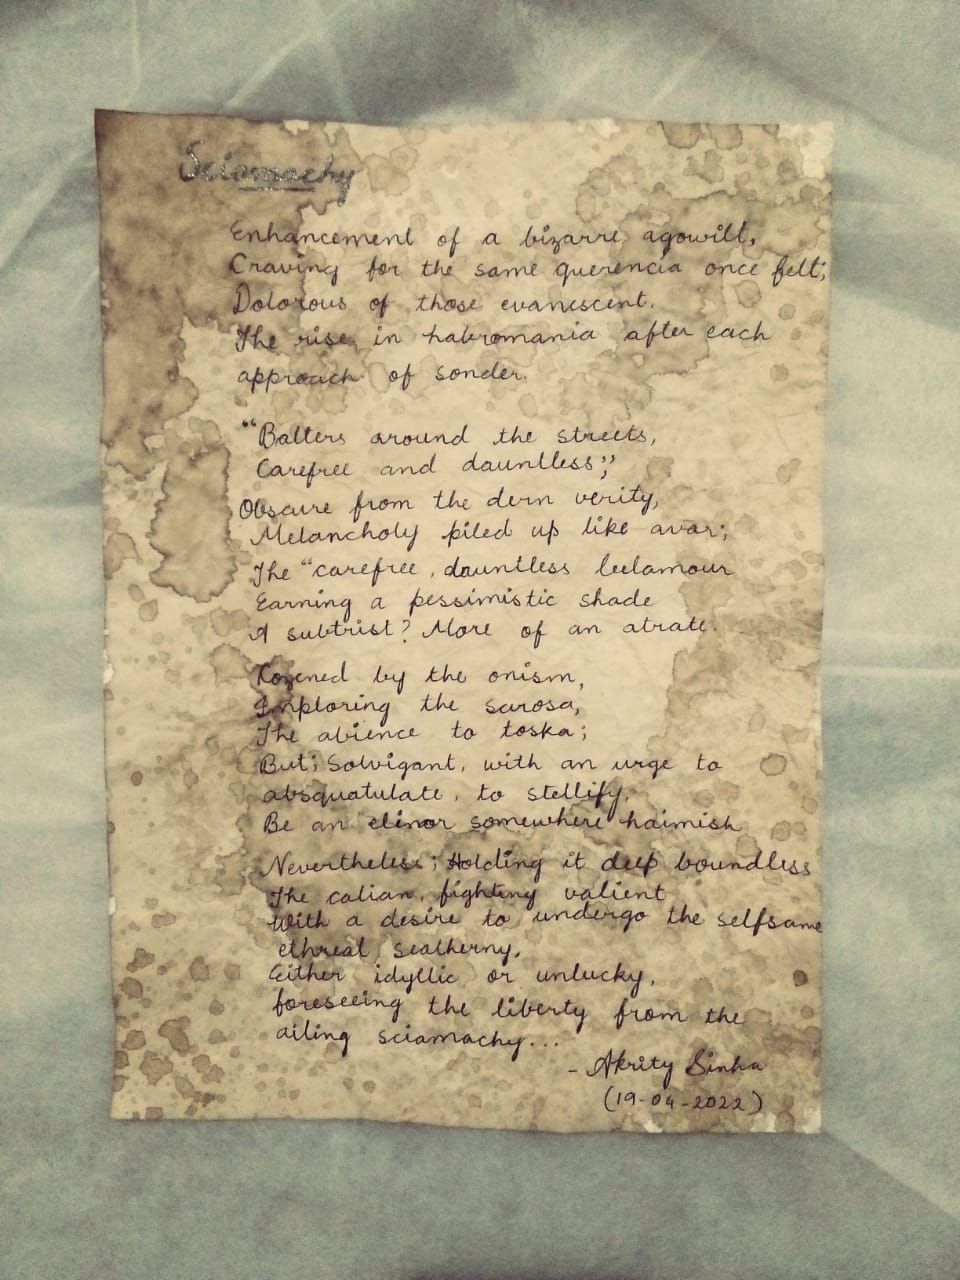 Sciamachy
Enhancement of a bizarre agowill,
Craving for the same querencia once felt;
Dolorous of those evanescent.
The rise in habromania after each
approach of sonder.
"Balters around the streets,
Carefree and dauntless;"
Obscure from the dern verity,
Melancholy piled up like avar;
The "carefree, dauntless belamour
Earning a pessimistic shade
A subtrist? More of an atrate.
Cozened by the onism,
Imploring the sarosa,
The abience to toska;
But; Solvigant, with an urge to
absquatulate, to stellify,
Be an elinor somewhere haimish
Nevertheless; Holding it deep boundless
The calian, fighting valient
With a desire to undergo the selfsame
ethreal seatherny,
Either idyllic or unlucky,
foreseeing the liberty from the
ailing sciamachy...
- Akrity Sinha
(19-04-2022)